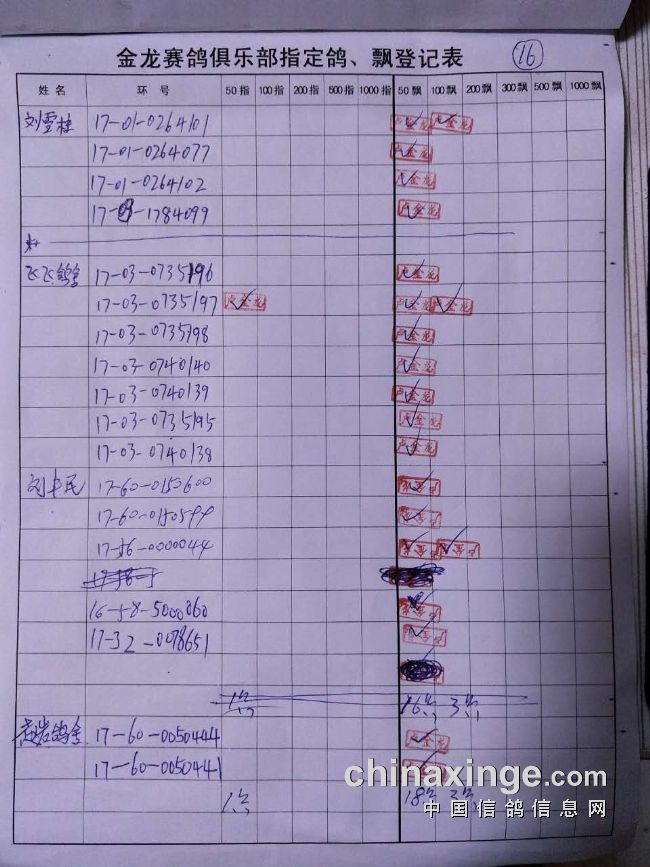 金龙赛鸽俱乐部指定鸽、飘登记表 16
姓名 环号 50指 100指 200指 500指 1000指 50飘 100飘 200飘 300飘 500飘 1000飘
刘雪桂 17-01-0264101 卢金龙 卢金龙
17-01-0264077 卢金龙
17-01-0264102 卢金龙
17-03-1784099 卢金龙
飞飞鸽舍 17-03-0735196 卢金龙
17-03-0735197 卢金龙 卢金龙 卢金龙
17-03-0735198 卢金龙
17-03-0740140 卢金龙
17-03-0740139 卢金龙
17-03-0735195 卢金龙
17-03-0740138 卢金龙
刘丰民 17-60-0150600
17-60-0150599
17-56-0000044
16-58-5000060
17-32-0078651
1 16 3
岩鸽舍 17-60-0050444 卢金龙
17-60-0050441
1 18 3
chinaxinge.com
中国信鸽信息网